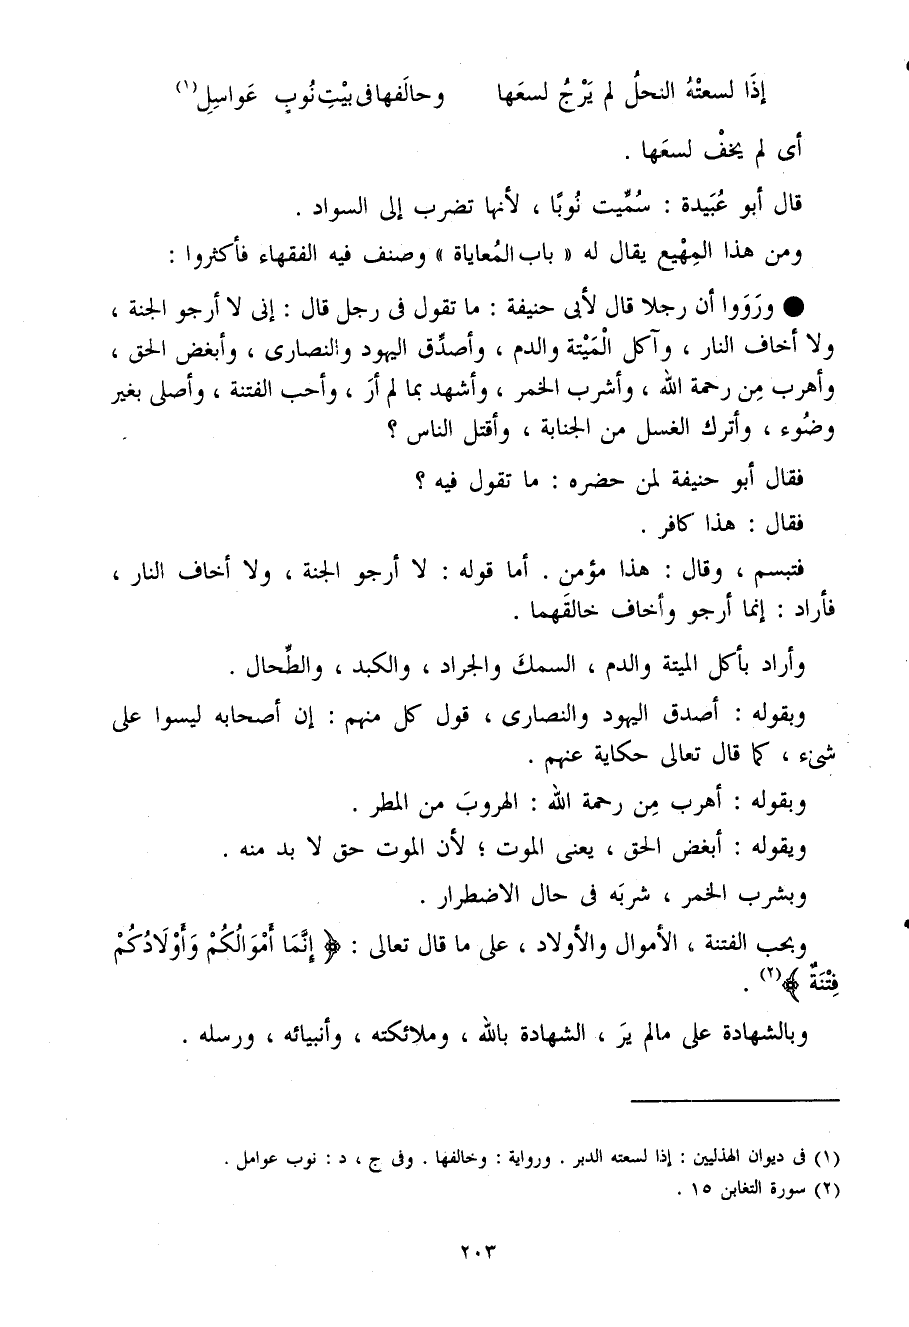 إذَا لسعتْهُ النحلُ لم يَرْجُ لسعَها وحالَفها فى بيْتِ نُوبٍ عَواسِلِ(١)
أى لم يخفْ لسعَها .
قال أبو عُبَيدة : سُمِّيت نُوبًا ، لأنها تضرب إلى السواد .
ومن هذا المِهْيع يقال له « باب المُعاياة » وصنف فيه الفقهاء فأكثروا :
● ورَوَوا أن رجلا قال لأبى حنيفة : ما تقول فى رجل قال : إنى لا أرجو الجنة ،
ولا أخاف النار ، وآكل الْمَيْتة والدم ، وأصدِّق اليهود والنصارى ، وأبغض الحق ،
وأهرب مِن رحمة الله ، وأشرب الخمر ، وأشهد بما لم أرَ ، وأحب الفتنة ، وأصلى بغير
وضُوء ، وأترك الغسل من الجنابة ، وأقتل الناس ؟
فقال أبو حنيفة لمن حضره : ما تقول فيه ؟
فقال : هذا كافر .
فتبسم ، وقال : هذا مؤمن . أما قوله : لا أرجو الجنة ، ولا أخاف النار ،
فأراد : إنما أرجو وأخاف خالقَهما .
وأراد بأكل الميتة والدم ، السمك والجراد ، والكبد ، والطِّحال .
وبقوله : أصدق اليهود والنصارى ، قول كل منهم : إن أصحابه ليسوا على
شىء ، كما قال تعالى حكاية عنهم .
وبقوله : أهرب مِن رحمة الله : الهروبَ من المطر .
وبقوله : أبغض الحق ، يعنى الموت ؛ لأن الموت حق لا بد منه .
وبشرب الخمر ، شربَه فى حال الاضطرار .
وبحب الفتنة ، الأموال والأولاد ، على ما قال تعالى : ﴿ إِنَّمَا أَمْوَالُكُمْ وَأَوْلَادُكُمْ
فِتْنَةٌ ﴾(٢) .
وبالشهادة على مالم يرَ ، الشهادة بالله ، وملائكته ، وأنبيائه ، ورسله .
(١) فى ديوان الهذليين : إذا لسعته الدبر . ورواية : وخالفها . وفى ج ، د : نوب عوامل .
(٢) سورة التغابن ١٥ .
٢٠٣